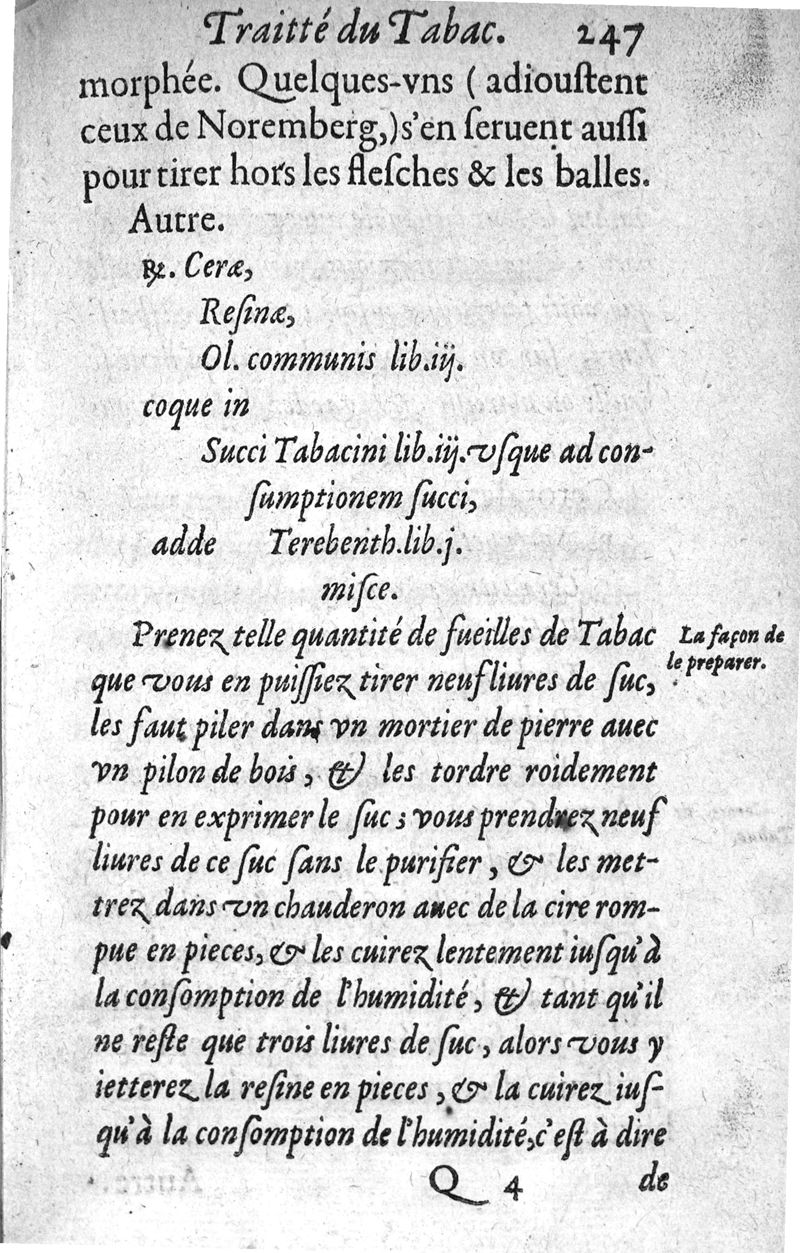 Traitté du Tabac. 247
morphée. Quelques-vns ( adiouſtent
ceux de Noremberg,) s'en ſeruent auſſi
pour tirer hors les fleſches & les balles.
Autre.
℞. Ceræ,
Reſinæ,
Ol. communis lib.iij.
coque in
Succi Tabacini lib.iij. vſque ad con-
ſumptionem ſucci,
adde Terebenth. lib.j.
miſce.
Prenez telle quantité de fueilles de Tabac
La façon de
le preparer.
que vous en puiſſiez tirer neuf liures de ſuc,
les faut piler dans vn mortier de pierre auec
vn pilon de bois, & les tordre roidement
pour en exprimer le ſuc; vous prendrez neuf
liures de ce ſuc ſans le purifier, & les met-
trez dans vn chauderon auec de la cire rom-
pue en pieces, & les cuirez lentement iuſqu'à
la conſomption de l'humidité, & tant qu'il
ne reſte que trois liures de ſuc, alors vous y
ietterez la reſine en pieces, & la cuirez iuſ-
qu'à la conſomption de l'humidité, c'eſt à dire
Q 4 de